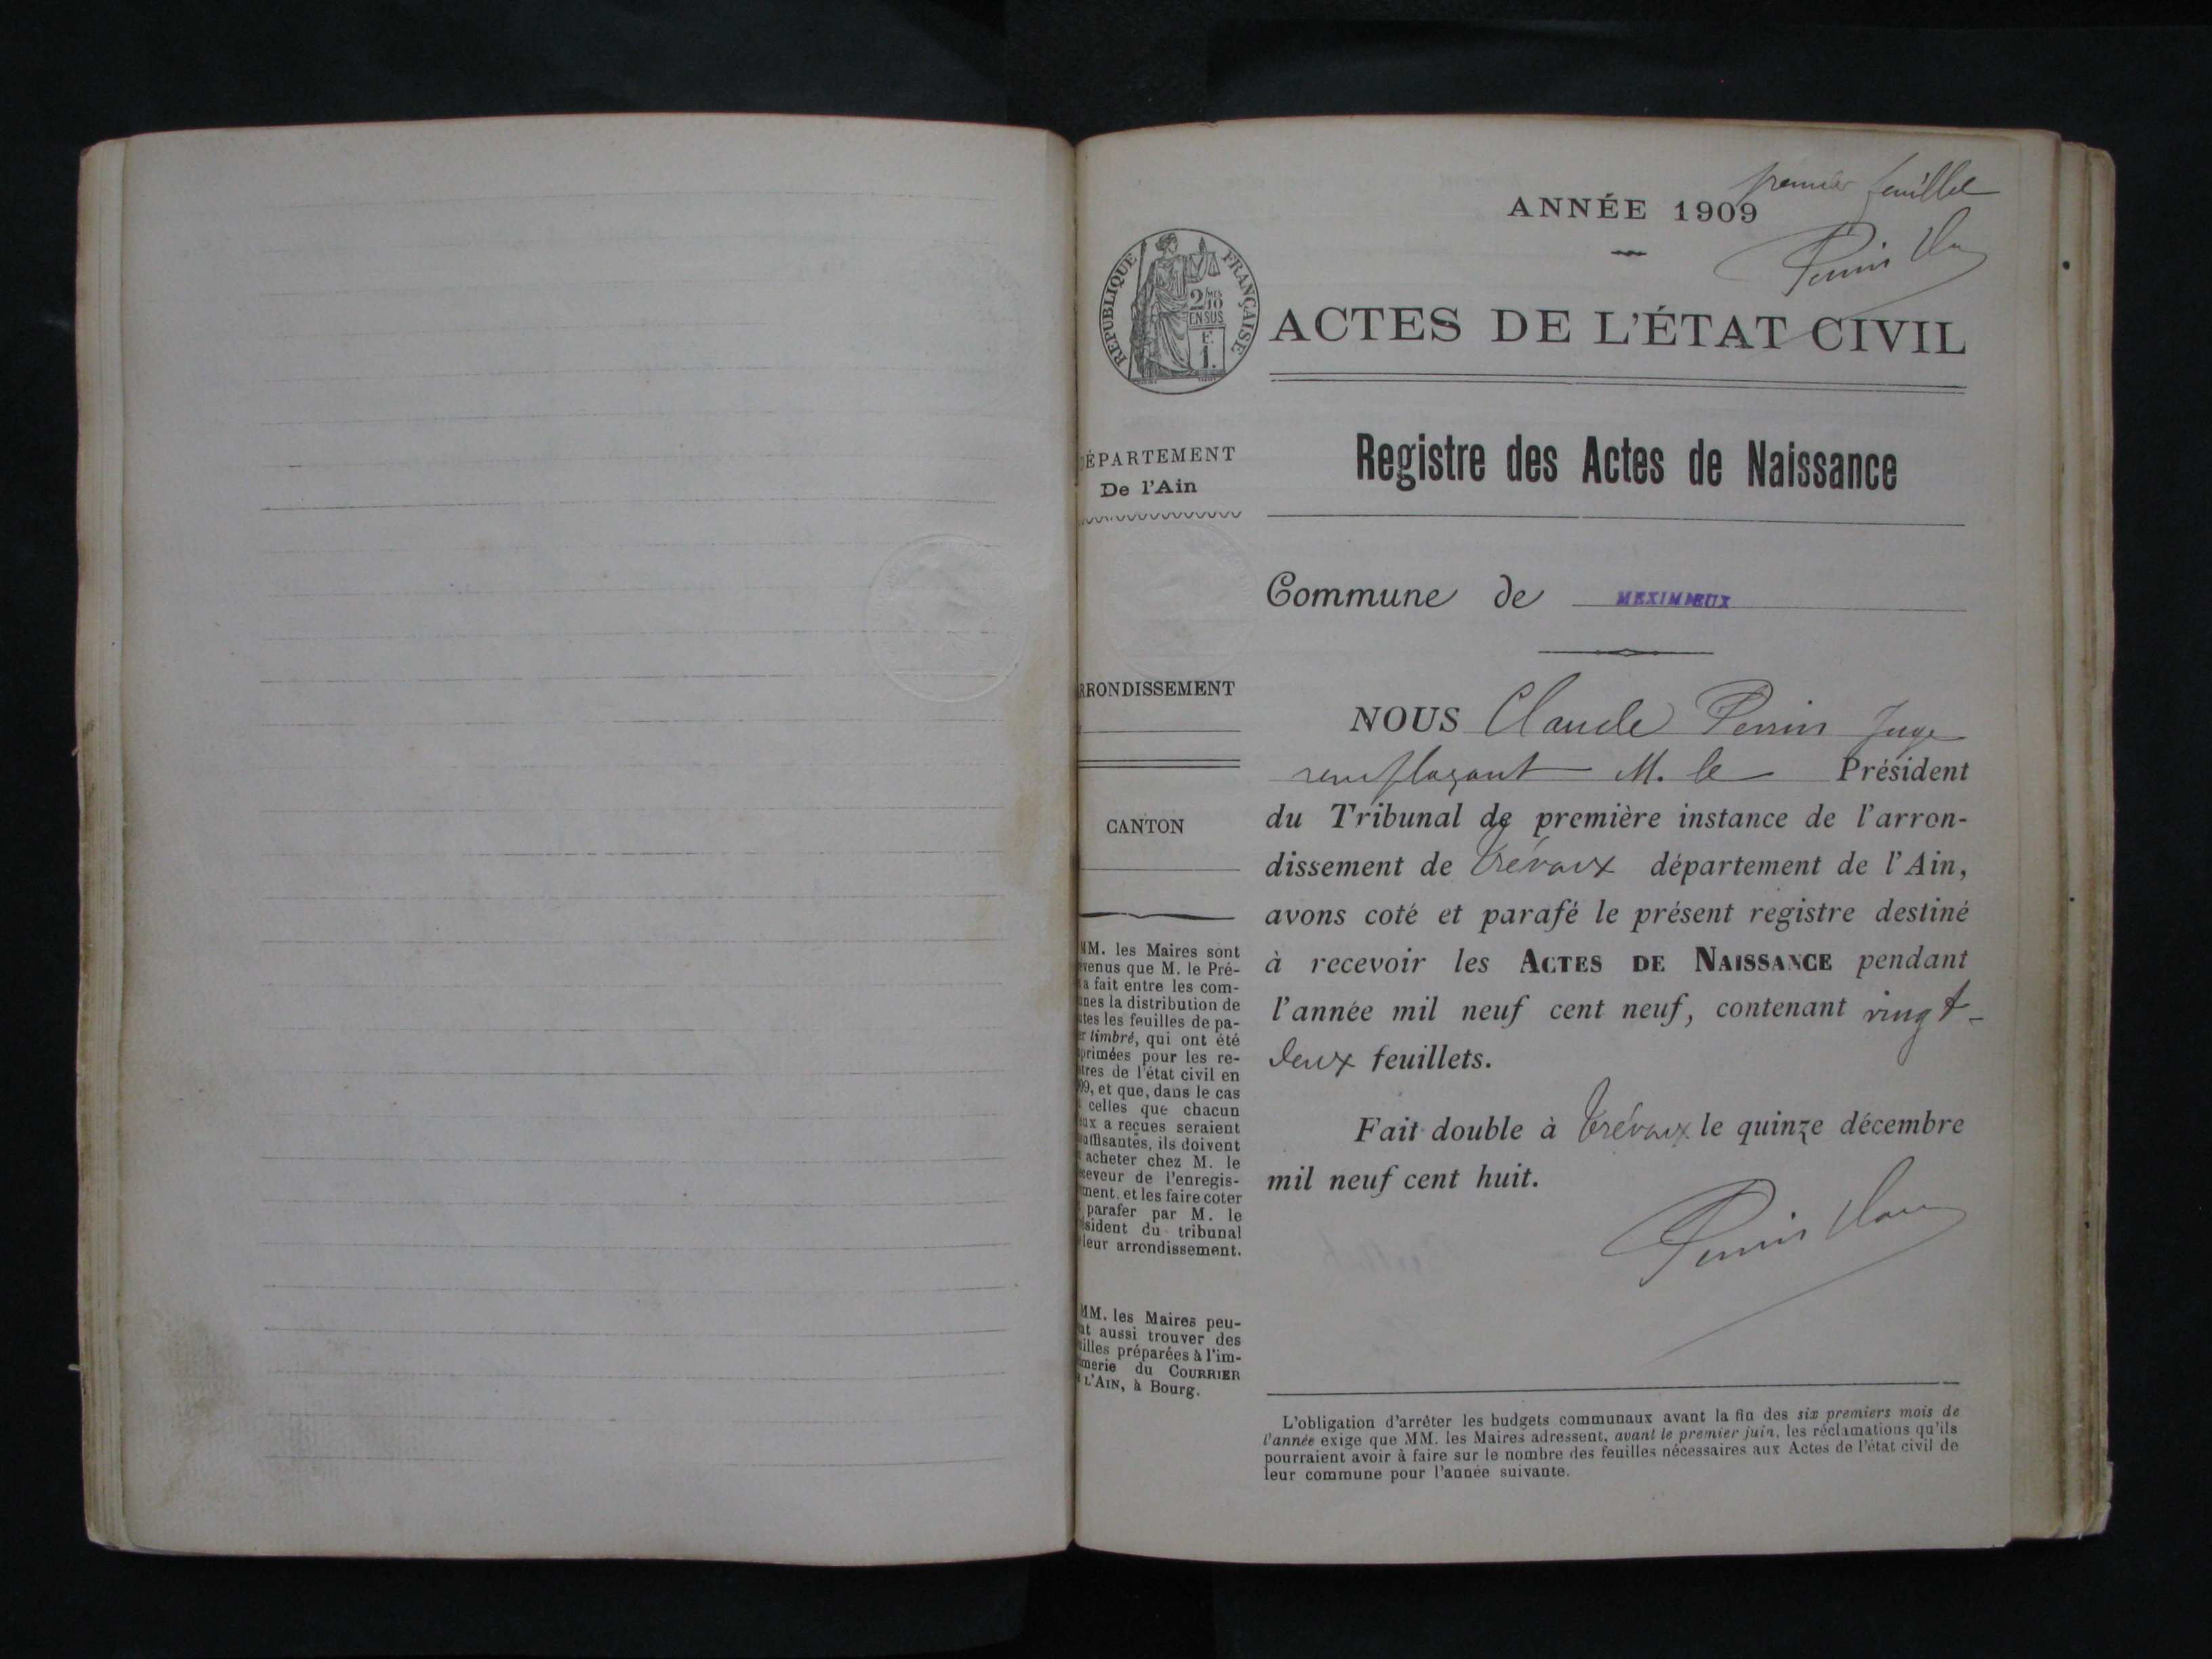 premier feuillet
ANNÉE 1909
RÉPUBLIQUE FRANÇAISE
2/10
EN SUS
F.
1.
ACTES DE L'ÉTAT CIVIL
DÉPARTEMENT
De l'Ain
Registre des Actes de Naissance
Commune de MEXIMIEUX
RRONDISSEMENT
CANTON
NOUS Claude Perrin Juge
remplaçant M. le Président
du Tribunal de première instance de l'arron-
dissement de Trévoux département de l'Ain,
avons coté et parafé le présent registre destiné
à recevoir les ACTES DE NAISSANCE pendant
l'année mil neuf cent neuf, contenant vingt-
deux feuillets.
Fait double à Trévoux le quinze décembre
mil neuf cent huit.
Perrin
MM. les Maires sont
venus que M. le Pré-
a fait entre les com-
nes la distribution de
tes les feuilles de pa-
r timbré, qui ont été
primées pour les re-
tres de l'état civil en
09, et que, dans le cas
celles que chacun
ux a reçues seraient
uffisantes, ils doivent
acheter chez M. le
ceveur de l'enregis-
ment. et les faire coter
parafer par M. le
sident du tribunal
leur arrondissement.
MM. les Maires peu-
nt aussi trouver des
illes préparées à l'im-
merie du COURRIER
L'AIN, à Bourg.
L'obligation d'arrêter les budgets communaux avant la fin des six premiers mois de
l'année exige que MM. les Maires adressent, avant le premier juin, les réclamations qu'ils
pourraient avoir à faire sur le nombre des feuilles nécessaires aux Actes de l'état civil de
leur commune pour l'année suivante.